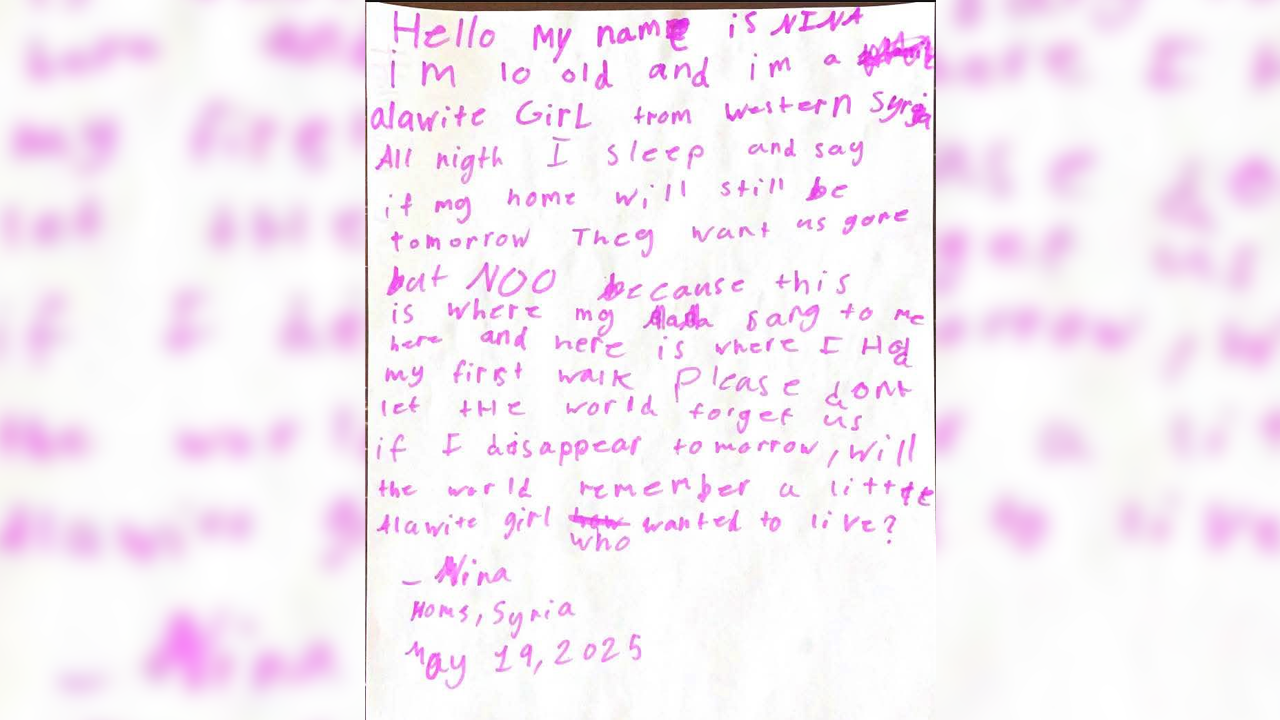 Hello my name is NINA
i'm 10 old and im a
alawite GirL from western Syria
All nigth I sleep and say
if my home will still be
tomorrow They want us gone
but NOO because this
is where my dada sang to me
here and here is where I Had
my first walk please dont
let tHe world forget us
if I disappear tomorrow, will
the world remember a little
Alawite girl who wanted to live?
– Nina
Homs, Syria
May 19, 2025